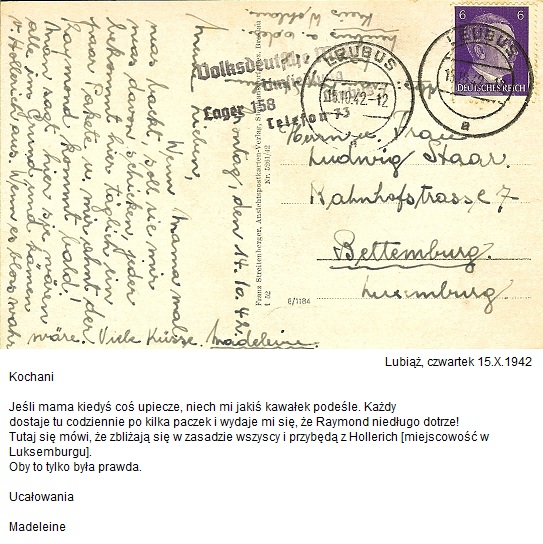 6 6
DEUTSCHES REICH
LEUBUS
15.10.42-12
a
LEUBUS
Volksdeutsche
Lager 158
Telefon 73
ontag, den 14.10.42.
lieben,
Wenn Mama mal
was backt, soll sie mir
was davon schicken, jeder
bekommt hier täglich ein
paar Pakete u. mir ahnt der
Raymond kommt bald!
Man sagt hier sie wären
alle im Grund und kämen
v. Hollerich aus. Wenn es bloss wahr
wäre. Viele Küsse. Madeleine.
Franz Streitenberger, Ansichtspostkarten-Verlag, Breslau
Nr. 5201/42
1 52
6/1184
Frau
Ludwig Staar.
Bahnhofstrasse 7
Bettemburg.
Luxemburg.
Lubiąż, czwartek 15.X.1942
Kochani
Jeśli mama kiedyś coś upiecze, niech mi jakiś kawałek podeśle. Każdy
dostaje tu codziennie po kilka paczek i wydaje mi się, że Raymond niedługo dotrze!
Tutaj się mówi, że zbliżają się w zasadzie wszyscy i przybędą z Hollerich [miejscowość w
Luksemburgu].
Oby to tylko była prawda.
Ucałowania
Madeleine